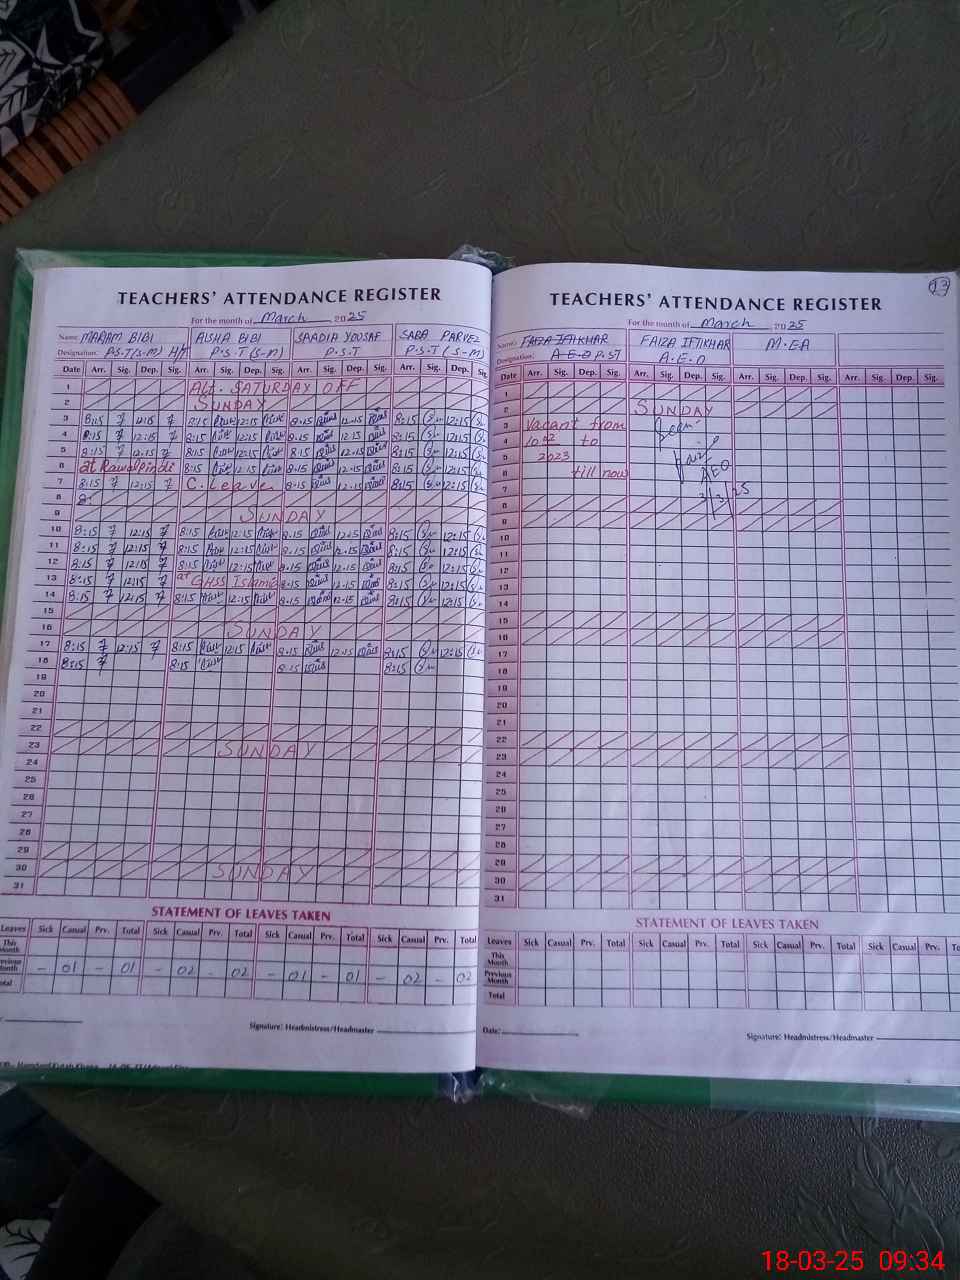 TEACHERS' ATTENDANCE REGISTER
For the month of March 2025
Name: MARAM BIBI AISHA BIBI SAADIA YOUSAF SABA PARVEZ
Designation: P.S.T(S-M) H/T P.S.T (S-M) P.S.T P.S.T (S-M)
Date Arr. Sig. Dep. Sig. Arr. Sig. Dep. Sig. Arr. Sig. Dep. Sig. Arr. Sig. Dep. Sig.
1 Alt. SATURDAY OFF
2 SUNDAY
3 8:15 12:15 8:15 12:15 8:15 12.15 8:15 12:15
4 8:15 12:15 8:15 12:15 8:15 12.15 8:15 12:15
5 8:15 12:15 8:15 12:15 8:15 12.15 8:15 12:15
6 at Rawalpindi 8:15 12:15 8:15 12.15 8:15 12:15
7 8:15 12:15 C. Leave 8:15 12.15 8:15 12:15
8
9 SUNDAY
10 8:15 12:15 8:15 12:15 8.15 12.15 8:15 12:15
11 8:15 12:15 8:15 12:15 8.15 12.15 8:15 12:15
12 8:15 12:15 8:15 12:15 8.15 12.15 8:15 12:15
13 8:15 12:15 at GHSS Islamia 8.15 12.15 8:15 12:15
14 8:15 12:15 8:15 12:15 8.15 12.15 8:15 12:15
15
16 SUNDAY
17 8:15 12:15 8:15 12:15 8.15 12.15 8:15 12:15
18 8:15 8:15 8.15 8:15
19
20
21
22
23 SUNDAY
24
25
26
27
28
29
30 SUNDAY
31
STATEMENT OF LEAVES TAKEN
Leaves Sick Casual Prv. Total Sick Casual Prv. Total Sick Casual Prv. Total Sick Casual Prv. Total
This Month
Previous Month - 01 - 01 - 02 - 02 - 01 - 01 - 02 - 02
Total
Signature: Headmistress/Headmaster
13
TEACHERS' ATTENDANCE REGISTER
For the month of March 2025
Name: FAIZA IFTIKHAR FAIZA IFTIKHAR M.EA
Designation: A.E.O P.ST A.E.O
Date Arr. Sig. Dep. Sig. Arr. Sig. Dep. Sig. Arr. Sig. Dep. Sig. Arr. Sig. Dep. Sig.
1
2 SUNDAY
3 Vacant from Seen
4 10 02 to
5 2023 AEO
6 till now
7 3/3/25
8
9
10
11
12
13
14
15
16
17
18
19
20
21
22
23
24
25
26
27
28
29
30
31
STATEMENT OF LEAVES TAKEN
Leaves Sick Casual Prv. Total Sick Casual Prv. Total Sick Casual Prv. Total Sick Casual Prv.
This Month
Previous Month
Total
Date:
Signature: Headmistress/Headmaster
18-03-25 09:34